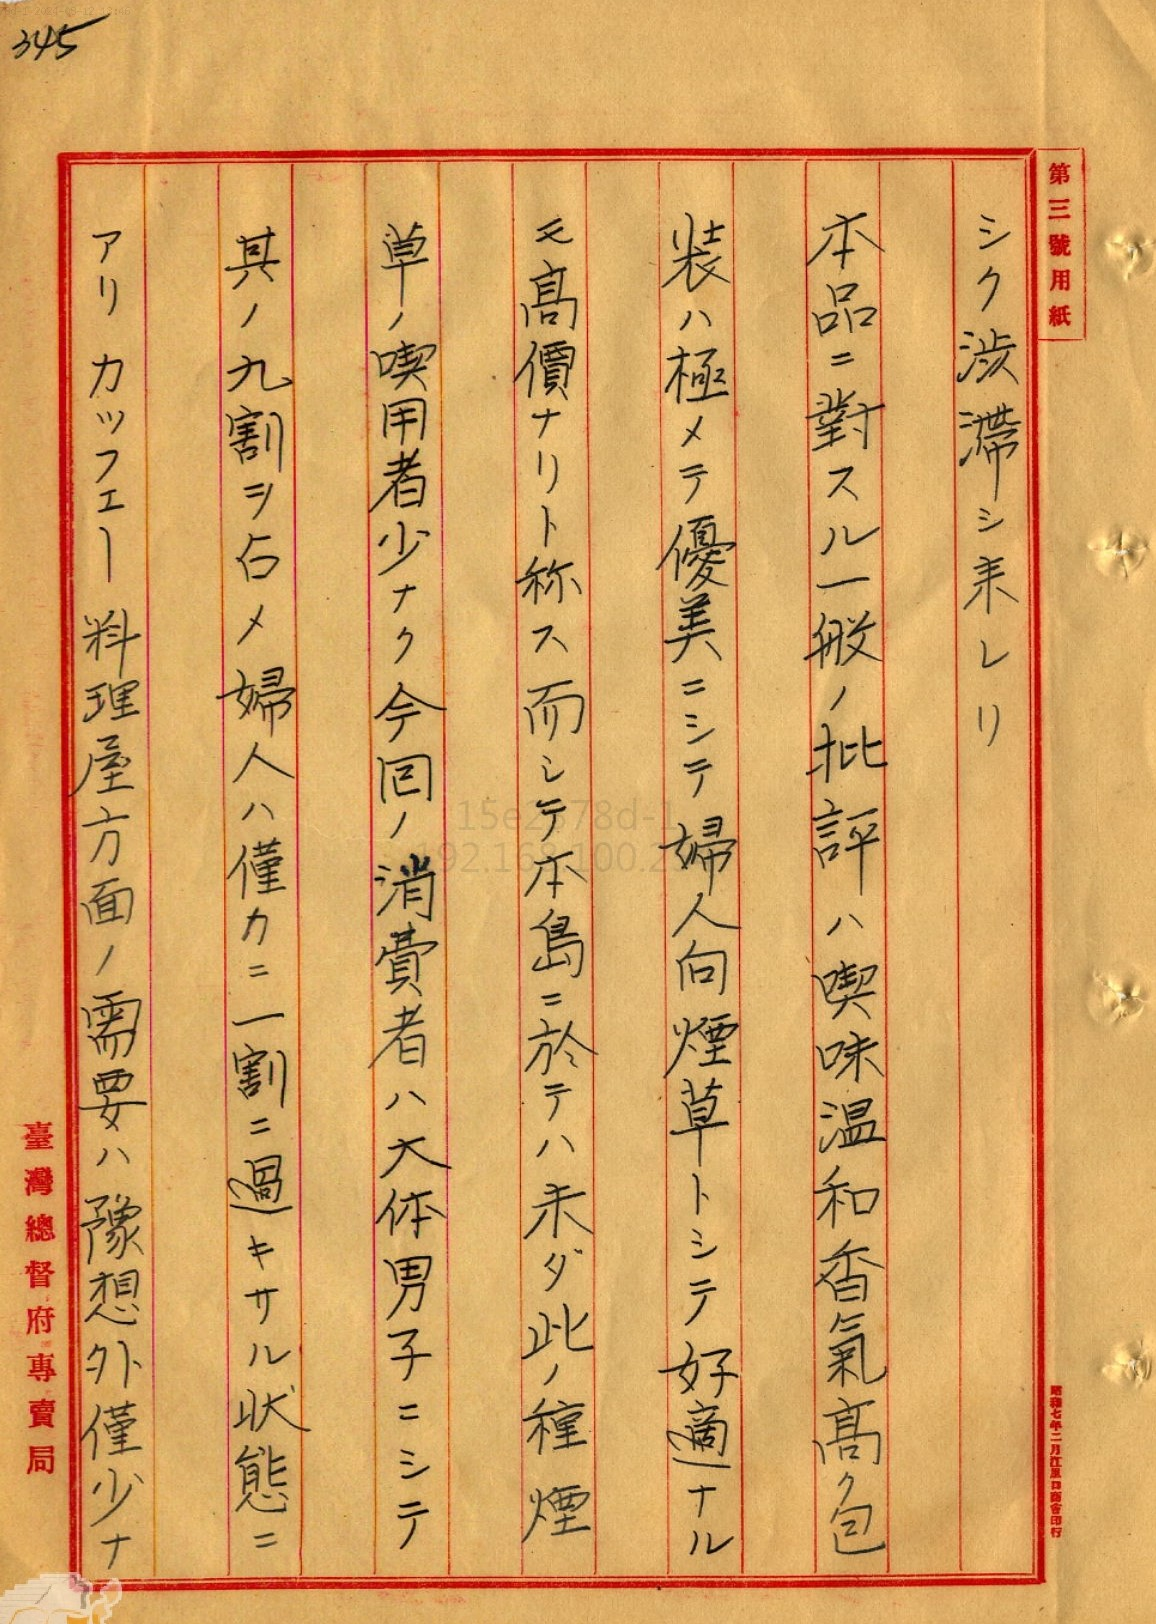 345
第三號用紙
シク渋滯シ来レリ
本品ニ對スル一般ノ批評ハ喫味温和香氣高ク包
装ハ極メテ優美ニシテ婦人向煙草トシテ好適ナル
モ高價ナリト称ス而シテ本島ニ於テハ未ダ此ノ種煙
草ノ喫用者少ナク今回ノ消費者ハ大体男子ニシテ
其ノ九割ヲ占メ婦人ハ僅カニ一割ニ過キサル状態ニ
アリ カッフェー 料理屋方面ノ需要ハ豫想外僅少ナ
臺灣總督府專賣局
昭和七年二月江里口商會印行
15e2378d-1